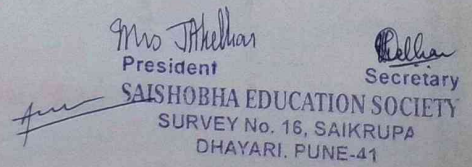 Mrs
President
Secretary
SAISHOBHA EDUCATION SOCIETY
SURVEY No. 16, SAIKRUPA
DHAYARI, PUNE-41